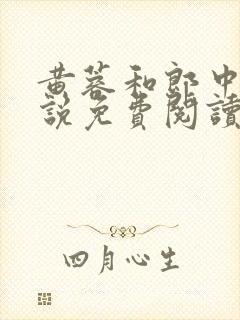 黄蓉和郎中
說免費閱讀
四月心生